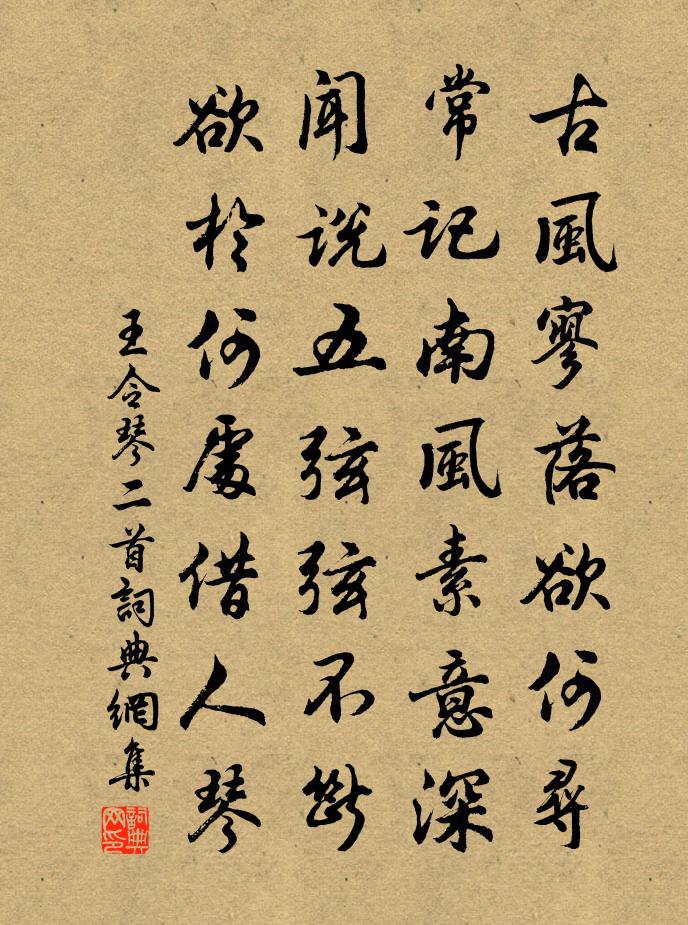 古風寥落欲何尋
常記南風素意深
聞説五弦弦不斷
欲於何處借人琴
王令琴二首詞典網集
詞典網印